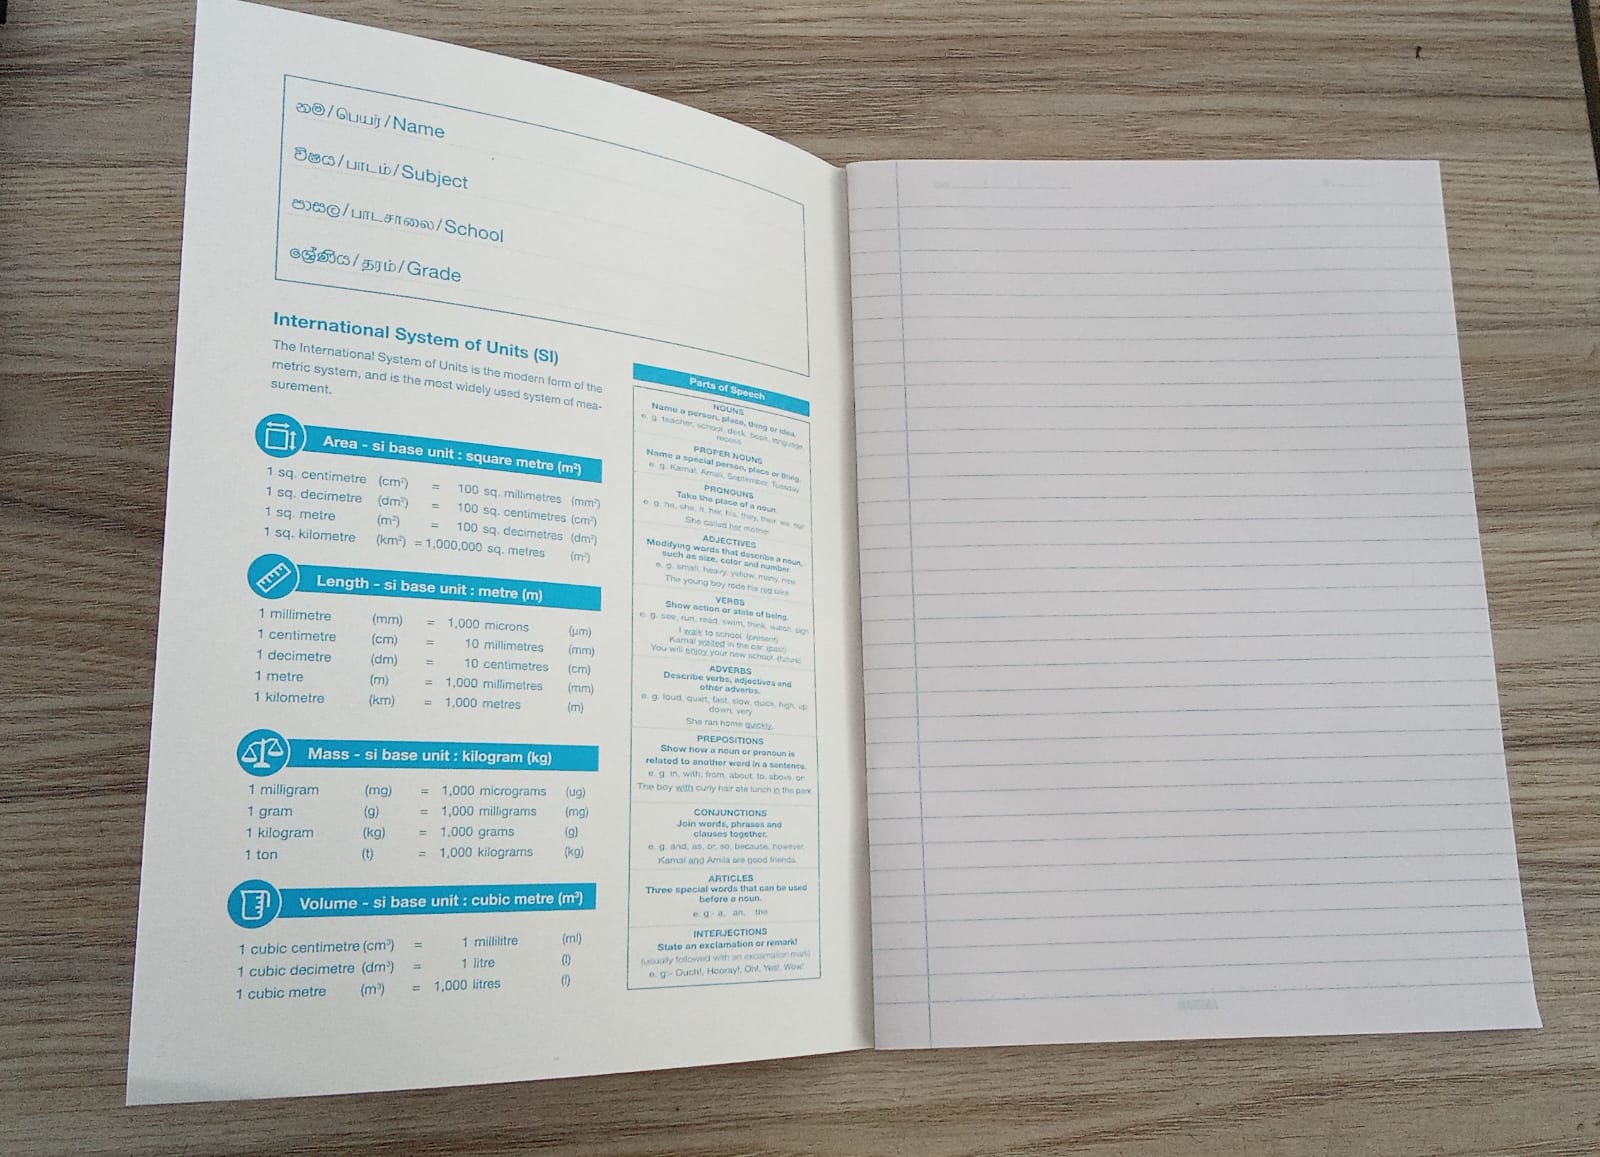 නම/பெயர்/Name
විෂය/பாடம்/Subject
පාසල/பாடசாலை/School
ශ්‍රේණිය/தரம்/Grade
International System of Units (SI)
The International System of Units is the modern form of the
metric system, and is the most widely used system of mea-
surement.
Area - si base unit : square metre (m²)
1 sq. centimetre (cm²) = 100 sq. millimetres (mm²)
1 sq. decimetre (dm²) = 100 sq. centimetres (cm²)
1 sq. metre (m²) = 100 sq. decimetres (dm²)
1 sq. kilometre (km²) = 1,000,000 sq. metres (m²)
Length - si base unit : metre (m)
1 millimetre (mm) = 1,000 microns (µm)
1 centimetre (cm) = 10 millimetres (mm)
1 decimetre (dm) = 10 centimetres (cm)
1 metre (m) = 1,000 millimetres (mm)
1 kilometre (km) = 1,000 metres (m)
Mass - si base unit : kilogram (kg)
1 milligram (mg) = 1,000 micrograms (ug)
1 gram (g) = 1,000 milligrams (mg)
1 kilogram (kg) = 1,000 grams (g)
1 ton (t) = 1,000 kilograms (kg)
Volume - si base unit : cubic metre (m³)
1 cubic centimetre (cm³) = 1 millilitre (ml)
1 cubic decimetre (dm³) = 1 litre (l)
1 cubic metre (m³) = 1,000 litres (l)
Parts of Speech
NOUNS
Name a person, place, thing or idea.
e. g. teacher, school, desk, book, language,
recess
PROPER NOUNS
Name a special person, place or thing.
e. g. Kamal, Amali, September, Tuesday
PRONOUNS
Take the place of a noun.
e. g. he, she, it, her, his, they, their, we, our
She called her mother
ADJECTIVES
Modifying words that describe a noun,
such as size, color and number.
e. g. small, heavy, yellow, many, new
The young boy rode his red bike
VERBS
Show action or state of being.
e. g. see, run, read, swim, think, watch, sign
I walk to school. (present)
Kamal waited in the car. (past)
You will enjoy your new school. (future)
ADVERBS
Describe verbs, adjectives and
other adverbs.
e. g. loud, quiet, fast, slow, quick, high, up,
down, very
She ran home quickly.
PREPOSITIONS
Show how a noun or pronoun is
related to another word in a sentence.
e. g. in, with, from, about, to, above, on
The boy with curly hair ate lunch in the park
CONJUNCTIONS
Join words, phrases and
clauses together.
e. g. and, as, or, so, because, however,
Kamal and Amila are good friends.
ARTICLES
Three special words that can be used
before a noun.
e. g - a, an, the
INTERJECTIONS
State an exclamation or remark!
(usually followed with an exclamation mark)
e. g - Ouch!, Hooray!, Oh!, Yes!, Wow!